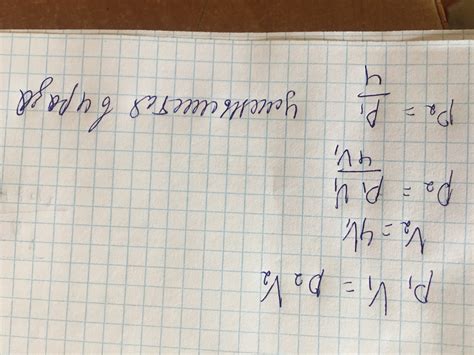 p₁ V₁ = p₂ V₂
V₂ = 4V₁
p₂ = p₁ V₁ / 4V₁
p₂ = p₁ / 4 уменьшится в 4 раза